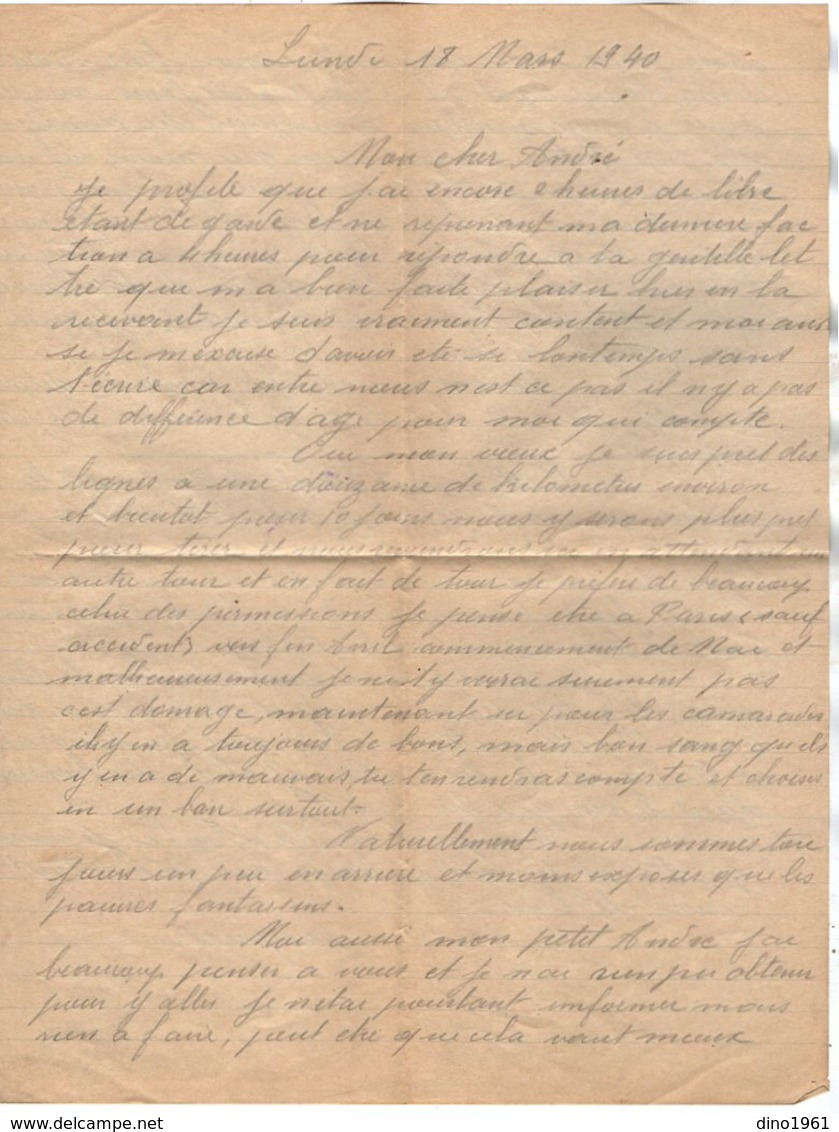 Lundi 18 Mars 1940
Mon cher André
Je profite que j'ai encore 2 heures de libre
etant de garde et ne reprenant ma derniere fac
tion a 4 heures pour repondre a ta gentille let
tre que m a bien faite plaisir hier en la
recevant je suis vraiment content et moi aus
si je m'excuse d'avoir ete si lontemps sans
t'ecrire car entre nous n'est ce pas il n'y a pas
de difference d'age pour moi qui compte.
Oui mon vieux je suis pret des
lignes a une douzaine de kilometres environ
et bientot pour 10 jours nous y serons plus pret
pour tirer et nous reviendrons ici en attendant un
autre tour et en fait de tour je prefere de beaucoup
celui des permissions je pense etre a Paris (sauf
accident) vers fin Avril commencement de Mai et
malheureusement je ne t'y verrai surement pas
c'est domage, maintenant vu pour les camarades
il y en a toujours de bons, mais bon sang qu'ils
y en a de mauvais, tu t'en rendras compte et choisis
en un bon surtout.
Naturellement nous sommes tou
jours un peu en arriere et moins exposes que les
pauvres fantassins.
Moi aussi mon petit Andre j'ai
beaucoup penser a vous et je n'ai rien pu obtenir
pour y aller je m'etai pourtant informer mais
rien a faire, peut etre que cela vaut mieux
dino1961